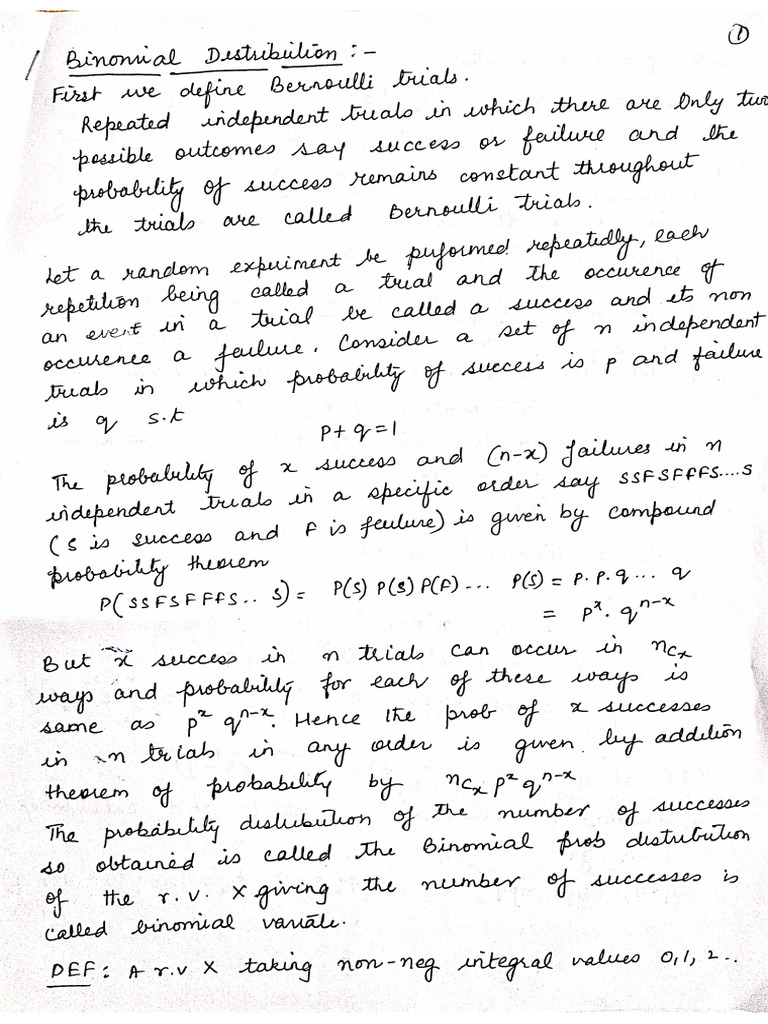 ①
Binomial Distribution :-
First we define Bernoulli trials.
Repeated independent trials in which there are only two
possible outcomes say success or failure and the
probability of success remains constant throughout
the trials are called Bernoulli trials.
Let a random experiment be performed repeatedly, each
repetition being called a trial and the occurence of
an event in a trial be called a success and its non
occurence a failure. Consider a set of n independent
trials in which probability of success is p and failure
is q s.t
p+q=1
The probability of x success and (n-x) failures in n
independent trials in a specific order say SSFSFFFS....S
(S is success and F is failure) is given by compound
probability theorem
P(SSFSFFFS.. S) = P(S) P(S) P(F) ... P(S) = p.p.q ... q
= pˣ. qⁿ⁻ˣ
But x success in n trials can occur in nCₓ
ways and probability for each of these ways is
same as pˣ qⁿ⁻ˣ. Hence the prob of x successes
in n trials in any order is given by addition
theorem of probability by nCₓ pˣ qⁿ⁻ˣ
The probability distribution of the number of successes
so obtained is called the Binomial prob distribution
of the r.v. X giving the number of successes is
called binomial variate.
DEF : A r.v X taking non-neg integral values 0,1, 2..